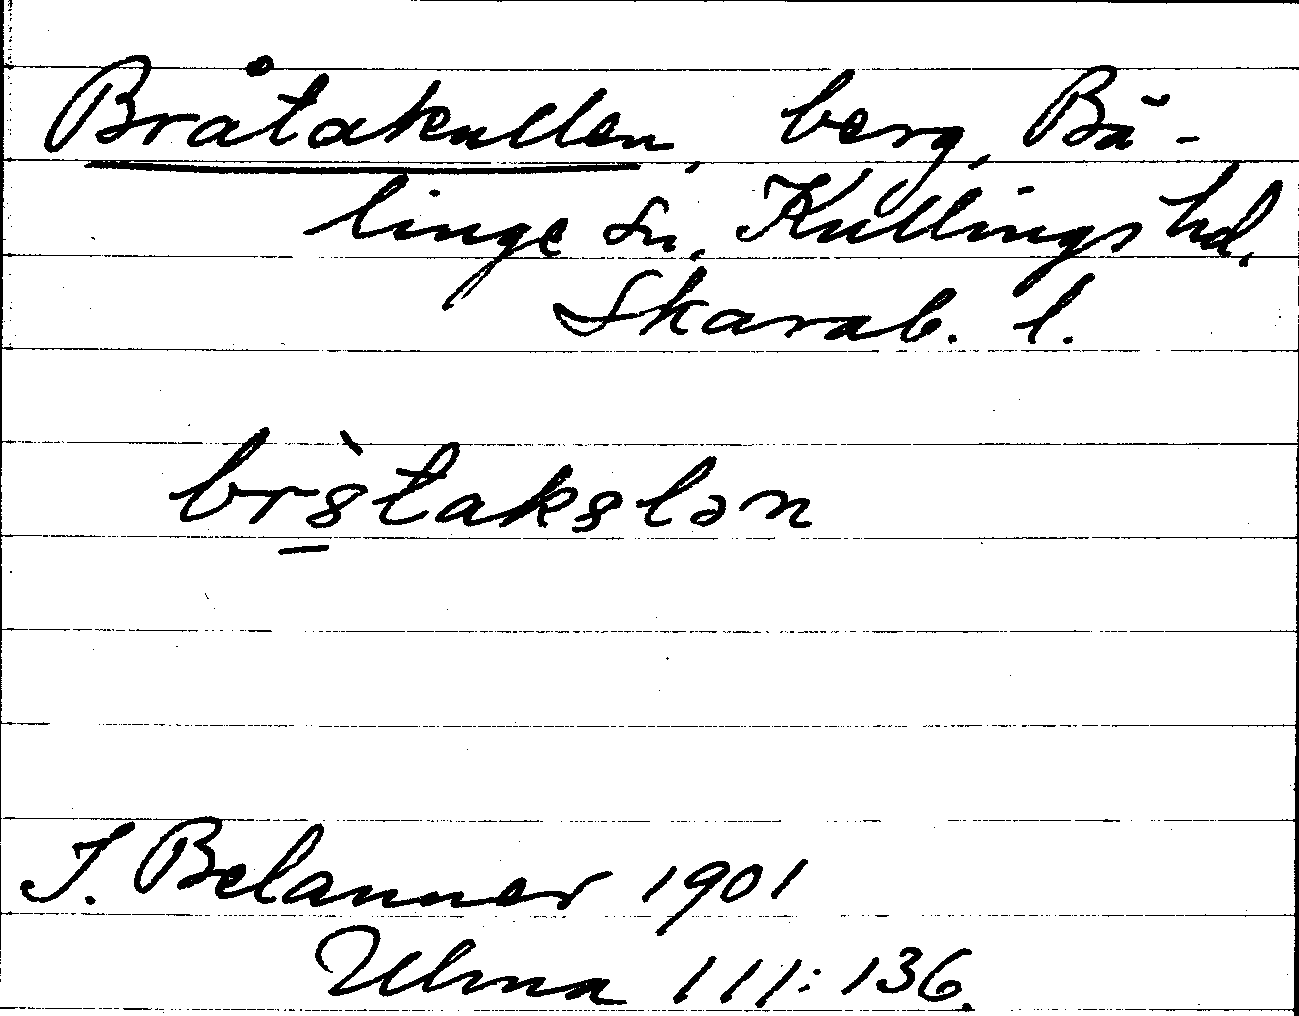 Bråtakullen, berg, Bä-
linge sn, Kullings hd,
Skarab. l.
br8̠̀taks8lən
J. Belanner 1901
Ulma 111:136.